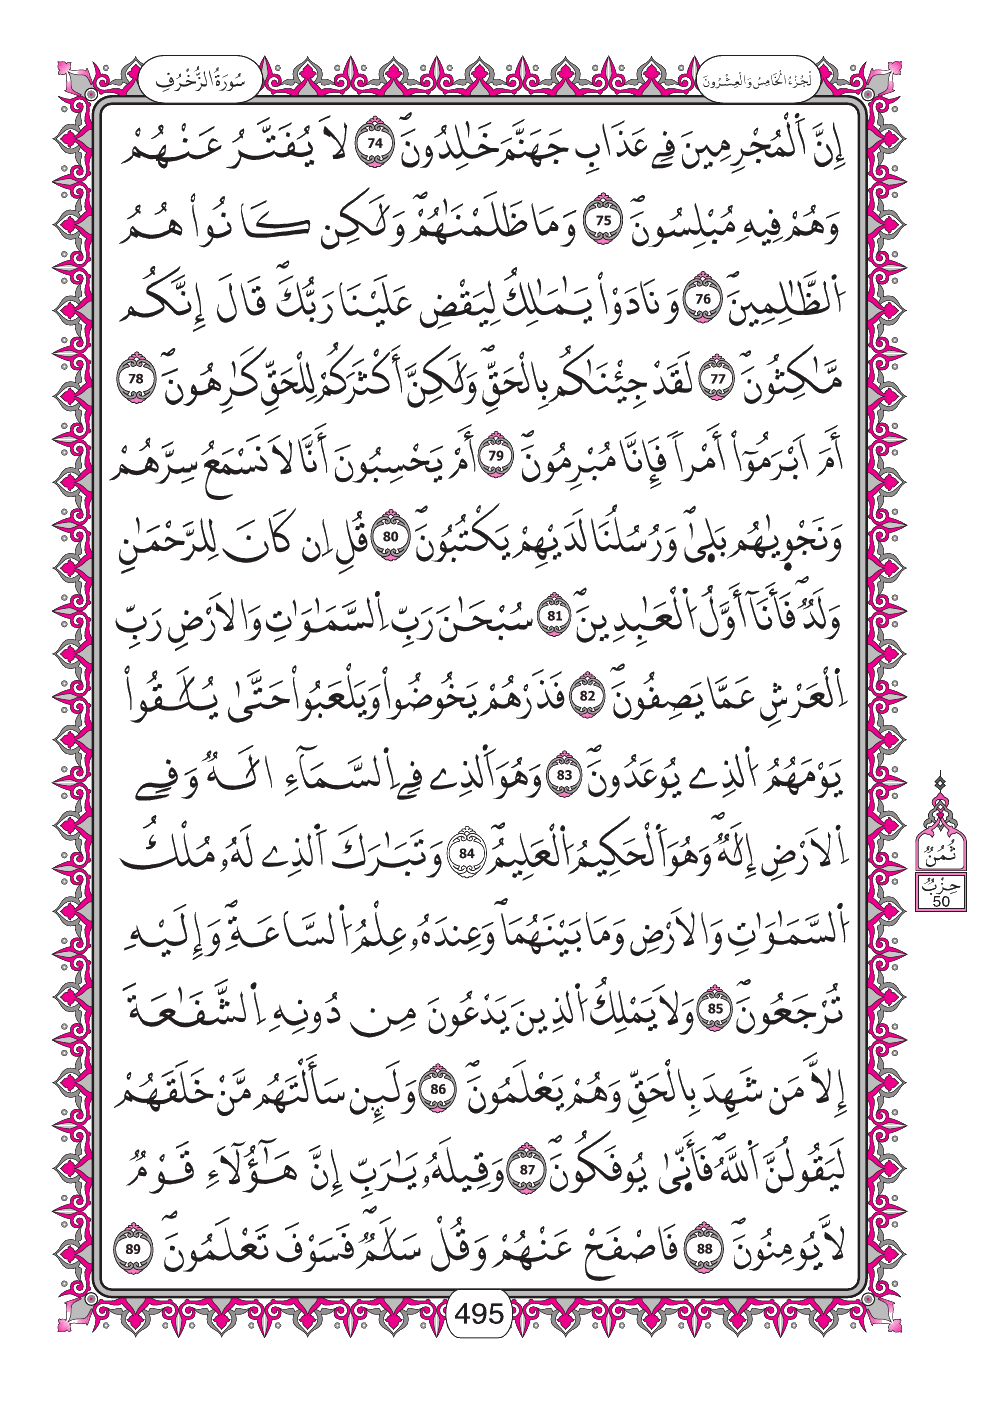 الجُزْءُ الْخَامِسُ وَالْعِشْرُونَ
سُورَةُ الزُّخْرُفِ
إِنَّ اَ۬لْمُجْرِمِينَ فِے عَذَابِ جَهَنَّمَ خَٰلِدُونَۖ 74 لَا يُفَتَّرُ عَنْهُمْ
وَهُمْ فِيهِ مُبْلِسُونَۖ 75 وَمَا ظَلَمْنَٰهُمْۖ وَلَٰكِن كَانُواْ هُمُ
اُ۬لظَّٰلِمِينَۖ 76 وَنَادَوْاْ يَٰمَٰلِكُ لِيَقْضِ عَلَيْنَا رَبُّكَۖ قَالَ إِنَّكُم
مَّٰكِثُونَۖ 77 لَقَدْ جِئْنَٰكُم بِالْحَقِّۖ وَلَٰكِنَّ أَكْثَرَكُمْ لِلْحَقِّ كَٰرِهُونَۖ 78
أَمَ اَبْرَمُوٓاْ أَمْراٗ فَإِنَّا مُبْرِمُونَۖ 79 أَمْ يَحْسِبُونَ أَنَّا لَا نَسْمَعُ سِرَّهُمْ
وَنَجْو۪يٰهُم بَل۪يٰ وَرُسُلُنَا لَدَيْهِمْ يَكْتُبُونَۖ 80 قُلِ اِن كَانَ لِلرَّحْمَٰنِ
وَلَدٞۖ فَأَنَآ أَوَّلُ اُ۬لْعَٰبِدِينَۖ 81 سُبْحَٰنَ رَبِّ اِ۬لسَّمَٰوَٰتِ وَالَارْضِ رَبِّ
اِ۬لْعَرْشِ عَمَّا يَصِفُونَۖ 82 فَذَرْهُمْ يَخُوضُواْ وَيَلْعَبُواْ حَتَّىٰ يُلَٰقُواْ
يَوْمَهُمُ اُ۬لذِے يُوعَدُونَۖ 83 وَهُوَ اَ۬لذِے فِے اِ۬لسَّمَآءِ اِ۬لَٰهٞ وَفِے
اِ۬لَارْضِ إِلَٰهٞۖ وَهُوَ اَ۬لْحَكِيمُ اُ۬لْعَلِيمُۖ 84 وَتَبَٰرَكَ اَ۬لذِے لَهُۥ مُلْكُ
اُ۬لسَّمَٰوَٰتِ وَالَارْضِ وَمَا بَيْنَهُمَاۖ وَعِندَهُۥ عِلْمُ اُ۬لسَّاعَةِۖ وَإِلَيْهِ
تُرْجَعُونَۖ 85 وَلَا يَمْلِكُ اُ۬لذِينَ يَدْعُونَ مِن دُونِهِ اِ۬لشَّفَٰعَةَ
إِلَّا مَن شَهِدَ بِالْحَقِّ وَهُمْ يَعْلَمُونَۖ 86 وَلَئِن سَأَلْتَهُم مَّنْ خَلَقَهُمْ
لَيَقُولُنَّ اَ۬للَّهُۖ فَأَنّ۪يٰ يُوفَكُونَۖ 87 وَقِيلَهُۥ يَٰرَبِّ إِنَّ هَٰٓؤُلَآءِ قَوْمٞ
لَّا يُومِنُونَۖ 88 فَاصْفَحْ عَنْهُمْ وَقُلْ سَلَٰمٞۖ فَسَوْفَ تَعْلَمُونَۖ 89
ثُمُنٌ
حِزْبٌ
50
495